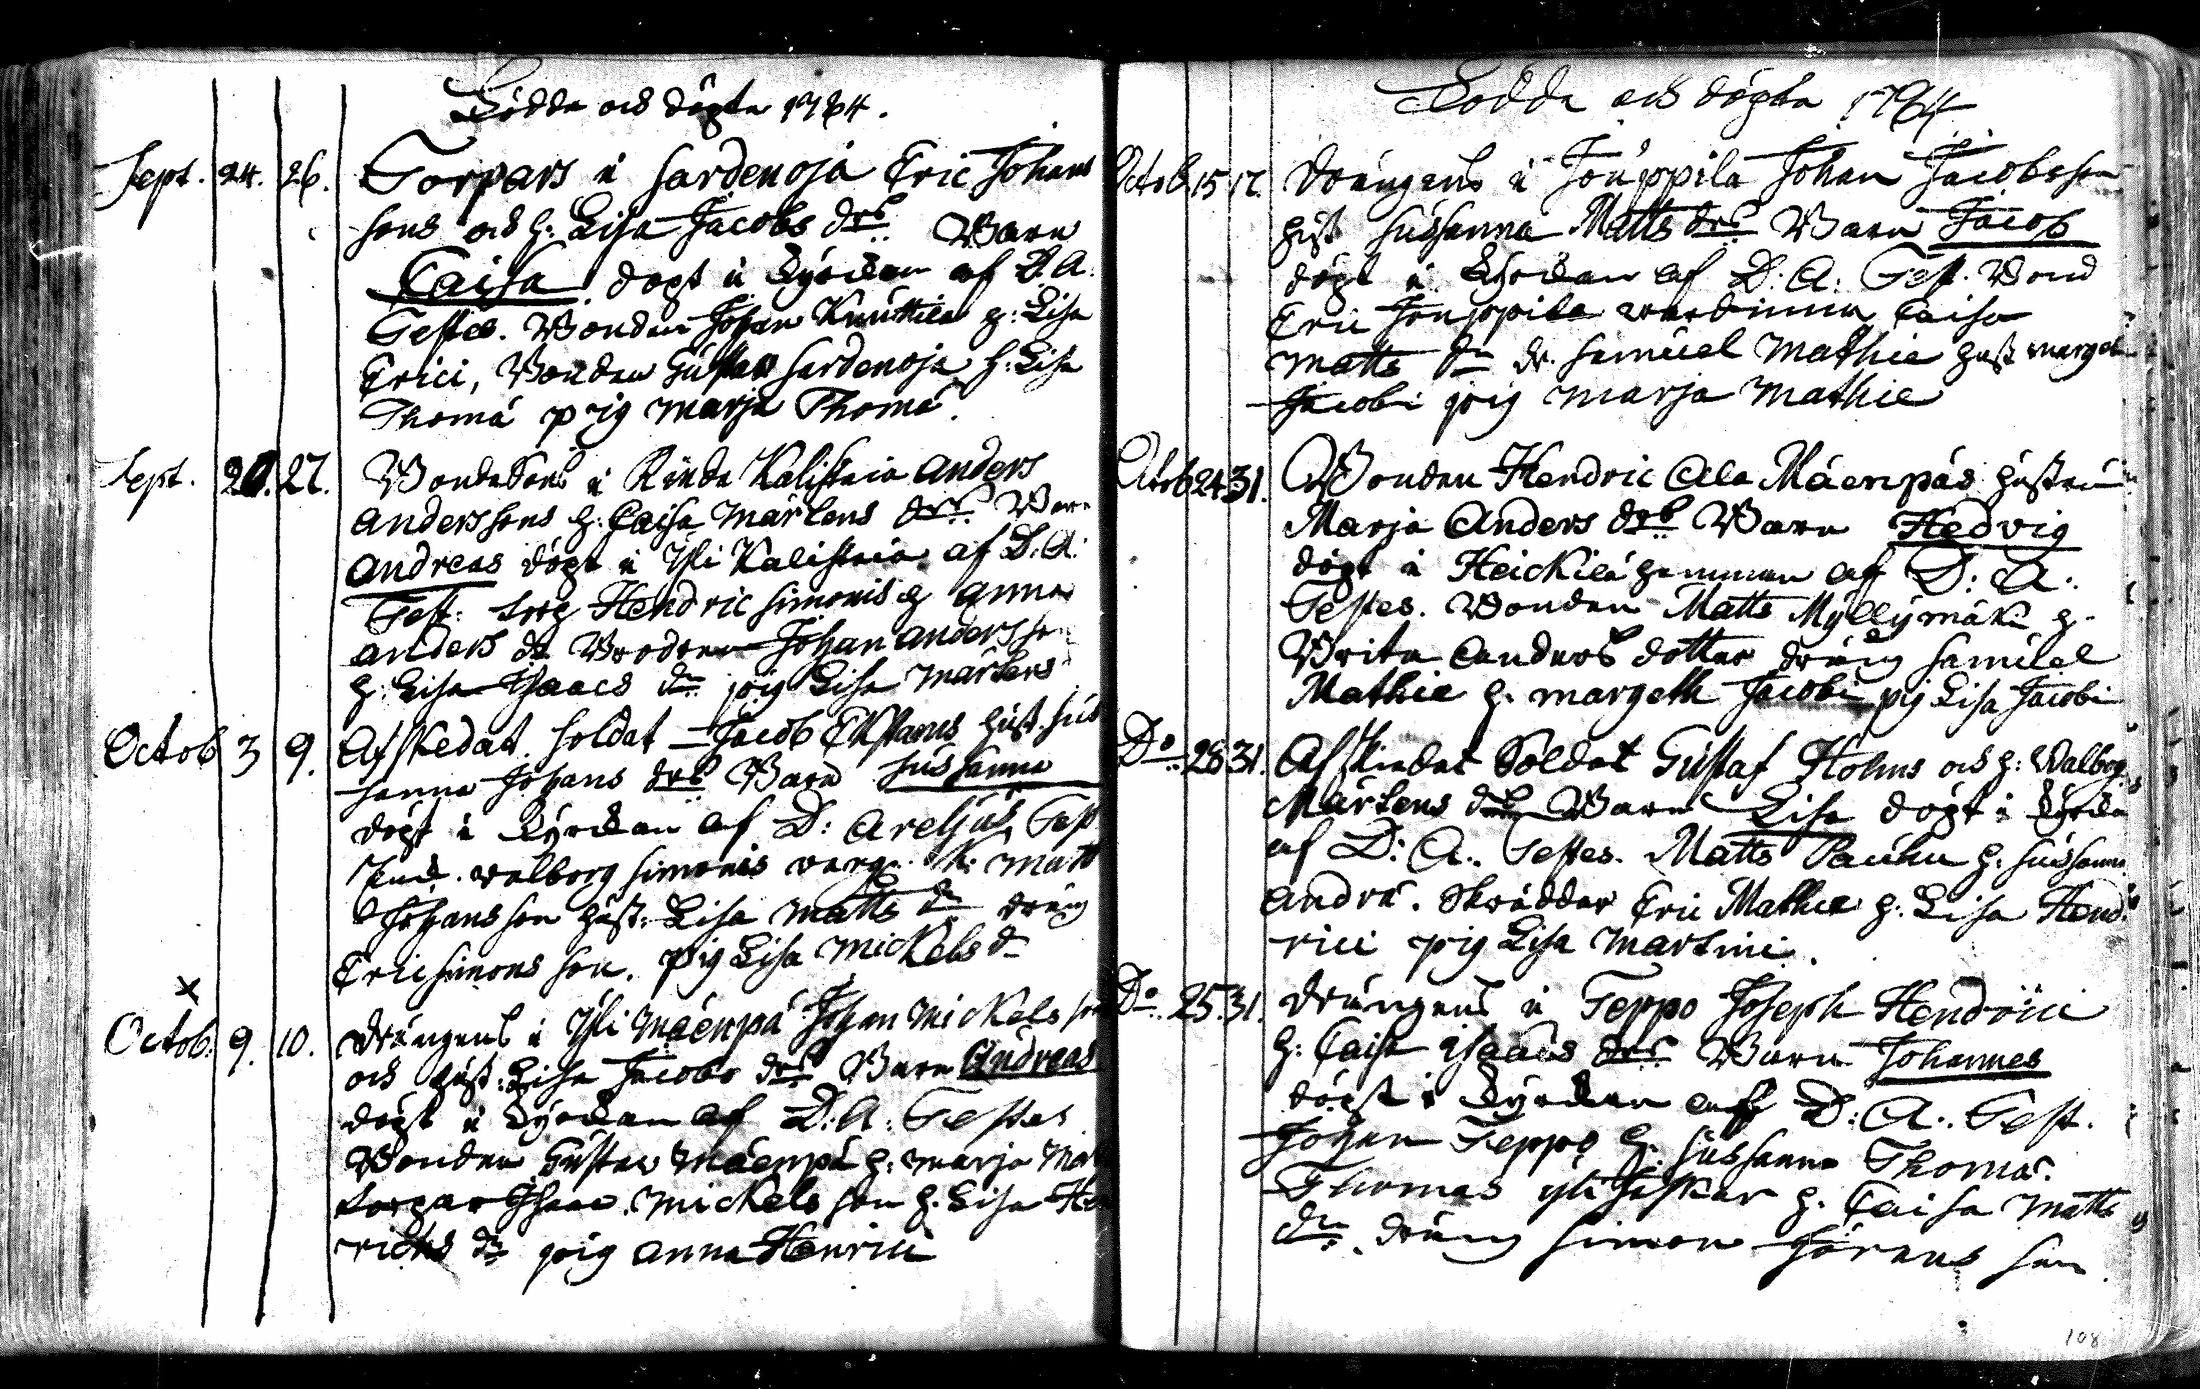 Födde och döpte 1764.
Sept. 24. 26. Torpars i Sardenoja Eric Johans
sons och h: Lisa Jacobs drs Barn
Caisa döpt i Kyrckan af D. A.
Testes. Bonden Johan Knuttila h: Lisa
Erici, Bonden Gustav Sardenoja h: Lisa
Thomæ pig Marja Thomæ.
Sept. 20. 27. Bondesons i Kalisteia Anders
Anderssons h: Caisa Mårtens drs Barn
Andreas döpt i Yli Kalisteia af D. A.
Test: Hendric Simonis h Anna
Anders dr Brodren Johan Andersson
h: Lisa Isaacs dr pig Lisa Mårtens
Octob 3 9. Afskedat soldat Jacob Ekstams hust. Sus
sanna Johans drs Barn Sussanna
döpt i Kyrckan af D: Areljus Test
Valborg Simonis Matt
Johansson hust: Lisa Matts dr dräng
Eric Simons son. pig Lisa Mickels dr
x
Octob. 9. 10. Drängens i Yli Mäenpä Johan Mickels son
och hust: Lisa Jacobs drs Barn Andreas
döpt i Kyrckan af D: A: Testes
Bonden Gustav Mäenpä h: Marja
torpar Isaac Mickels son h. Lisa Hen
richs dr pig Anna Henrici
Födde och döpta 1764
Octob 15 17. Drängens i Jouppila Johan Jacobsson
hust Sussanna Matts drs Barn Jacob
döpt i Kyrckan af D: A: Test. Bond
Eric Jouppila werdinna Caisa
Matts dr dr. Samuel Mathie hust Marget
Jacobi pig Marja Mathie
Octob 24 31. Bonden Hendric Ala Mäenpäs hustru
Marja Anders drs Barn Hedvig
döpt i Heickilä hemman af D: A.
Testes. Bonden Matts Myllymäki h.
Brita Anders dotter dräng Samuel
Mathie h. Margeth Jacobi pig Lisa Jacobi
Do 28 31. Afskedat Soldat Gustaf Holms och h: Walborg
Mårtens drs Barn Lisa döpt i Kyrcka
af D: A. Testes. Matts Pauhu h. Sussanna
Andræ. Skräddar Eric Mathie h: Lisa Hend
rici pig Lisa Martini.
Do 25. 31. Drängens i Teppo Joseph Hendrici
h: Caisa Isaacs drs Barn Johannes
döpt i Kyrckan af D: A. Test.
Johan Teppo h. Sussanna Thomæ.
Thomas h. Caisa Matts
dr. dräng Simon Jörens son.
108